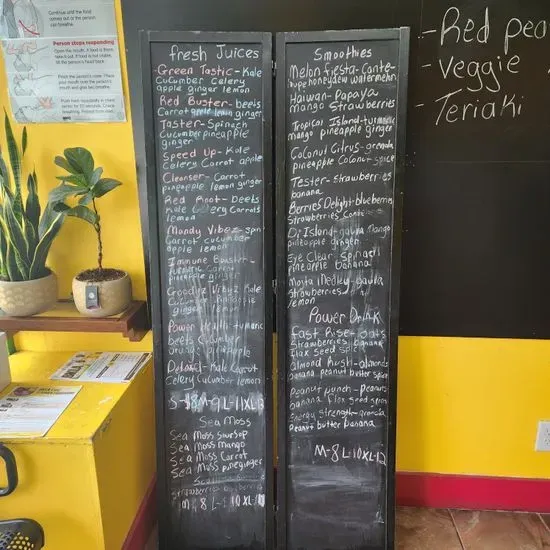 Continue until the food
comes out or the person
can breathe.
Person stops responding
fresh Juices
Green Tastic-Kale
cucumber celery
apple ginger lemon
Red Buster-beets
Carrot apple lemon ginger
Taster-Spinach
Cucumber pineapple
ginger
Speed Up-Kale
Celery Carrot apple
Cleanser-Carrot
pineapple lemon ginger
Red Root-beets
Kale Celery Carrots
lemon
Moody Vibez-spin
Carrot cucumber
apple lemon
Immune Booster-
tumeric Carrot
pineapple ginger
Goodiez Vibyz Kale
Cucumber pineapple
ginger
Power Health-tumeric
beets Cucumber
orange pineapple
Kale Carrot
Celery Cucumber lemon
Sea Moss
Sea Moss Soursop
Sea Moss Mango
Sea Moss Carrot
Sea Moss pineginger
Smoothies
Melon Fiesta-Cante-
lupe honeydew watermelon
Haiwan-Papaya
mango Strawberries
Tropical Island-tumeric
mango pineapple ginger
Coconut Citrus-granola
pineapple Coconut-spice
Tester-strawberries
banana
Berries Delight-blueberries
Strawberries
Di Island-gauva Mango
pineapple ginger
Eye Clear-Spinach
pineapple banana
Mosta Medley-gauva
Strawberries
lemon
Power Drink
Fast Rise-oats
Strawberries banana
flax seed spice
almond Rush-almonds
banana peanut butter spice
Peanut punch-Peanuts
banana Flax Seed spice
Energy Strength-granola
Peanut butter banana
M-8 L-10 XL-12
-Red pea
-Veggie
Teriaki